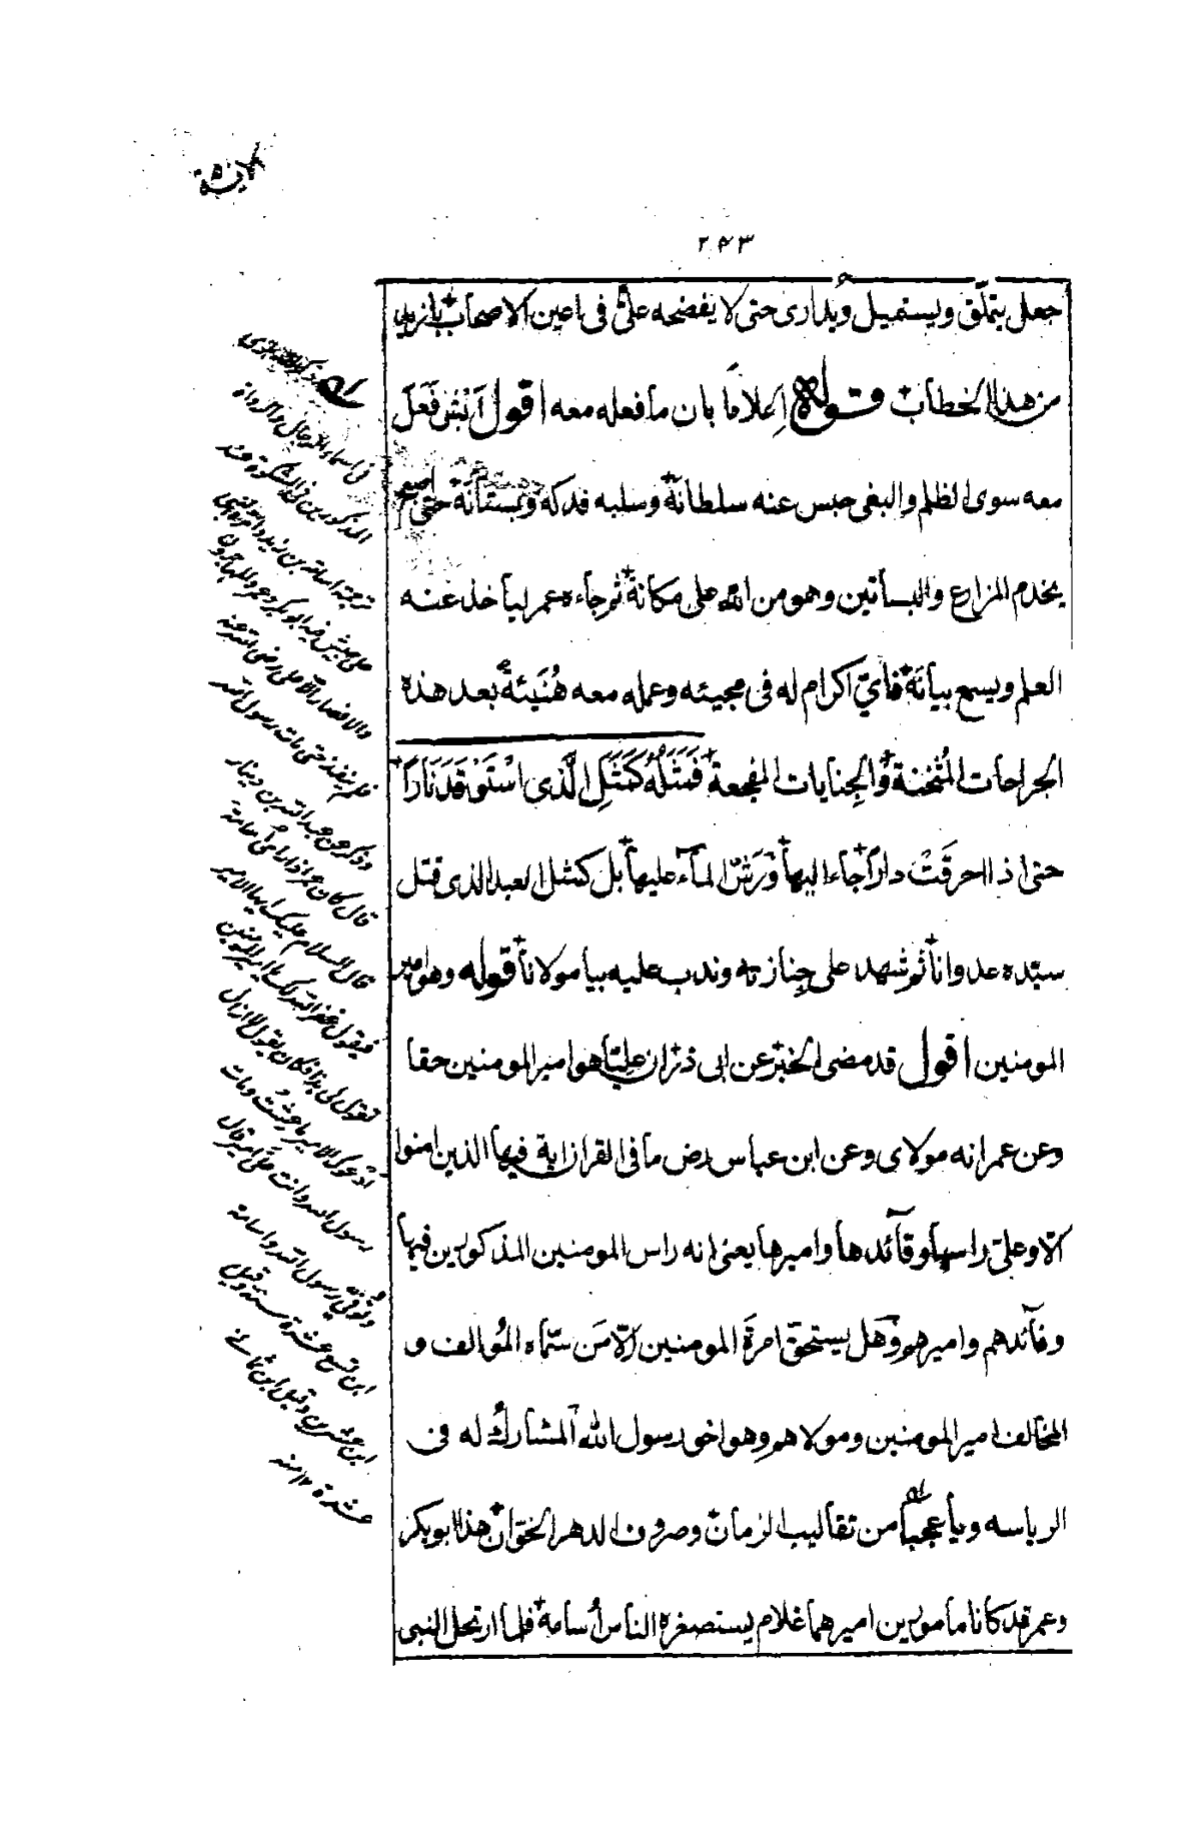 ۲۴۳
جعل يتملّق ويستميل ويدارى حتى لا يفضحه علىٌّ فى اعين الاصحاب بازيد
من هذا الخطاب قوله اعلاما بان ما فعله معه اقول اَىّ شئ فَعَلَ
معه سوى الظلم والبغى حبس عنه سلطانهٗ وسلبه فدكه وبستانهٗ حتى اصبح
يخدم المزارع والبساتين وهو من الله على مكانة ثم جاءه عمر ليأخذ عنه
العلم ويسمع بيانَهٗ فاىّ اكرام له فى مجيئه وعمله معه هُنَيئةً بعد هذه
الجراحات المُثخنة والجِنايات المفجعة فَمَثَلُهُ كَمَثَلِ الَّذى اسْتَوْقَدَ نَاراً
حتى اذا احرقَتْ داراً جاء اليها ورَشَّ المآء عليها بل كمثل العبد الذى قتل
سيّده عدواناً ثم شهد على جِنازته وندب عليه بيا مولانا قوله وهو امير
المومنين اقول قد مضى الخبر عن ابى ذرّ ان عليّاً هو امير المومنين حقا
وعن عمر انه مولاى وعن ابن عباس رض ما فى القران اية فيها الذين امنوا
الّا وعلىّ راسها وقآئدها واميرها يعنى انه راس المومنين المذكورين فيها
وقآئدهم واميرهم وهل يستحق امرةَ المومنين الّا مَن سمّاه المُوالف و
المخالف امير المومنين ومولاهم وهو اخو رسول الله المشارك له فى
الرياسه ويا عجباً من تقاليب الزمان وصروف الدهر الخوّان هذا ابو بكر
وعمر قد كانا مامورين اميرهما غلام يستصغره الناس اُسامة فلما ارتحل النبى
فى اسماء الرجال والرواة
المذكورين فى المشكوة عند
ترجمة اسامة بن زيد
على جيش فيه ابو بكر وعمر والمهاجرون
والانصار الا على رضى الله عنه
فلم ينفذ حتى مات رسول الله
وذكر عن عبد الله بن دينار
قال كان عمر اذا راى اُسامة
قال السلام عليك ايها الامير
فيقول غفر الله لك يا امير المومنين
تقول لى هذا فكان يقول لا ازال
ادعوك الامير ما عِشْتُ ومات
رسول الله وانت علىّ امير قال
وتُوفّى رسول الله واسامة
ابن تسع عشرة سنة وقيل
ابن عشرين وقيل ابن ثمانى
عشرة ١٢ منه